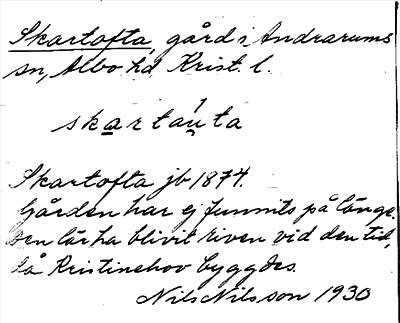 Skartofta, gård i Andrarums
sn, Albo hd, Krist. l.
skartau̯ta
Skartofta jb 1874.
Gården har ej funnits på länge.
Den lär ha blivit riven vid den tid,
då Kristinehov byggdes.
Nils Nilsson 1930